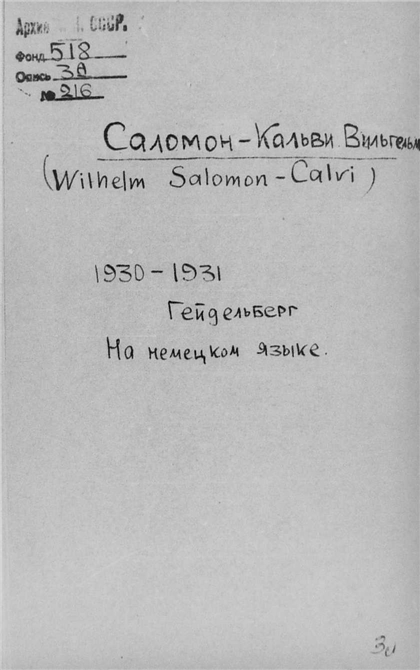 Архив СССР.
Фонд 518
Опись 3А
№ 216
Саломон-Кальви Вильгельм
(Wilhelm Salomon-Calvi)
1930-1931
Гейдельберг
На немецком языке.